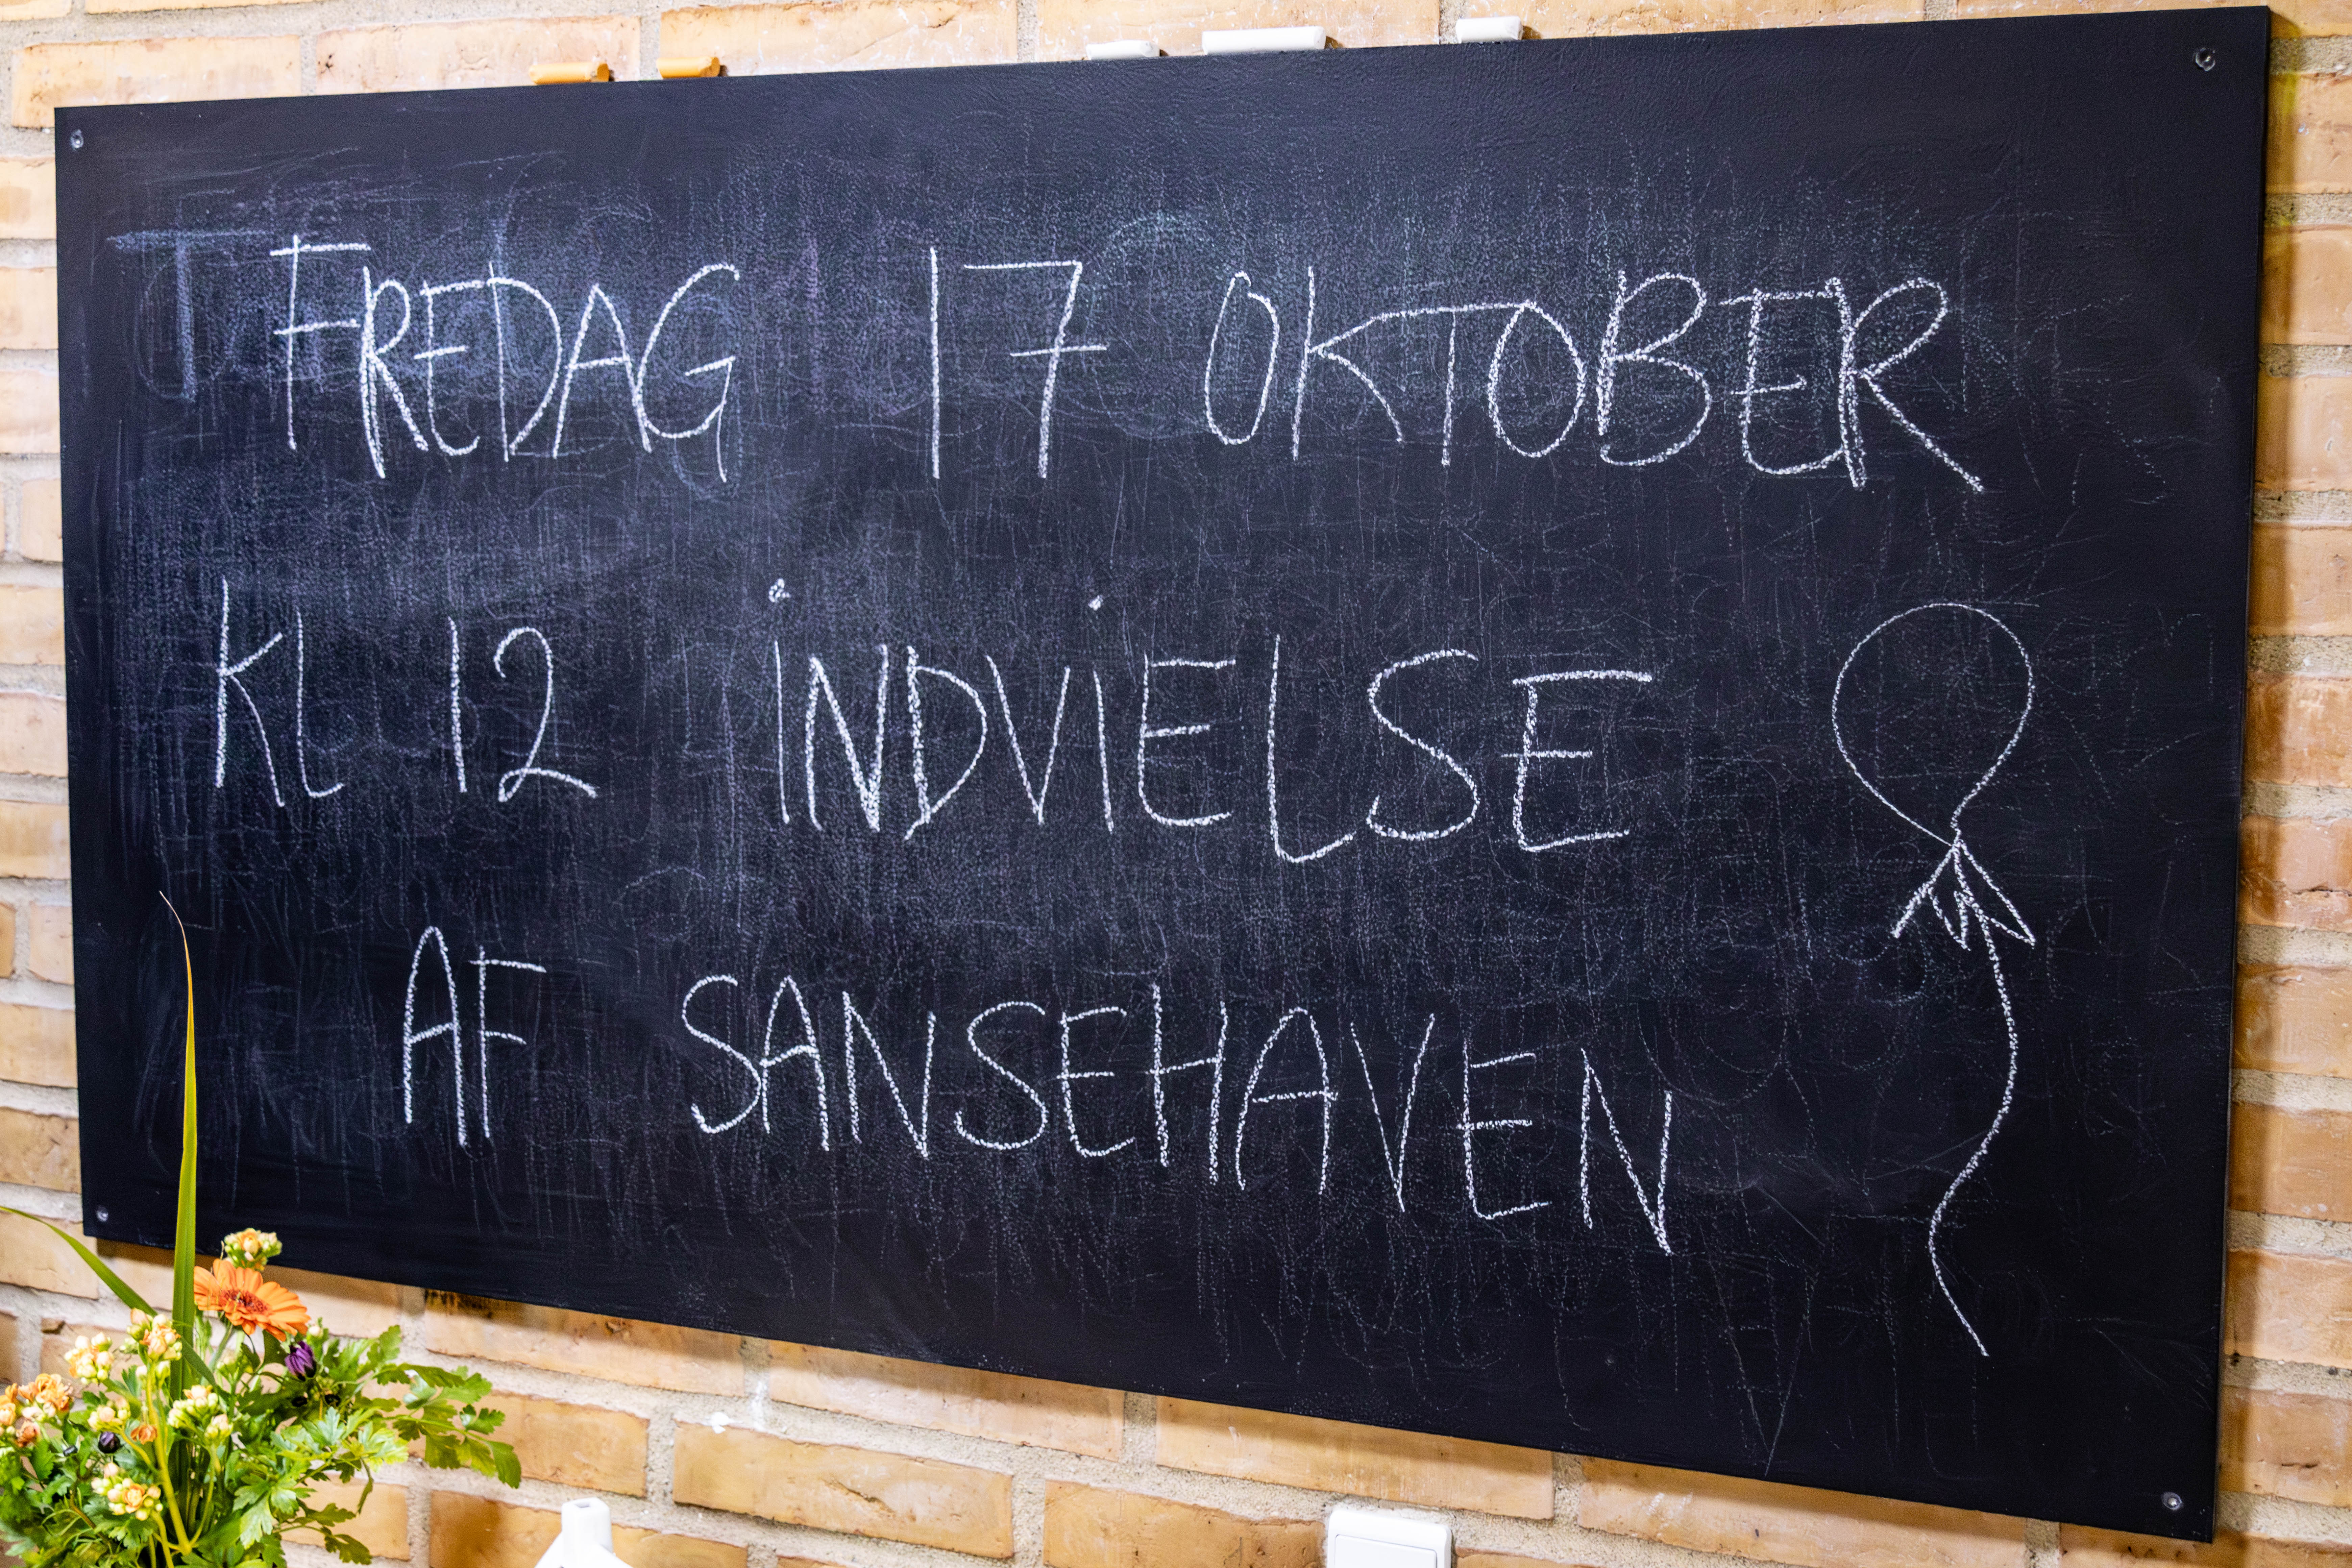 FREDAG 17 OKTOBER
KL 12 iNDViELSE
AF SANSEHAVEN